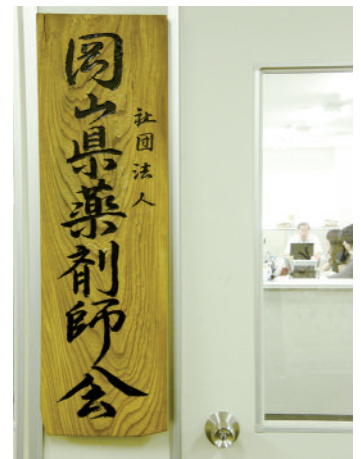 社団法人
岡山県薬剤師会